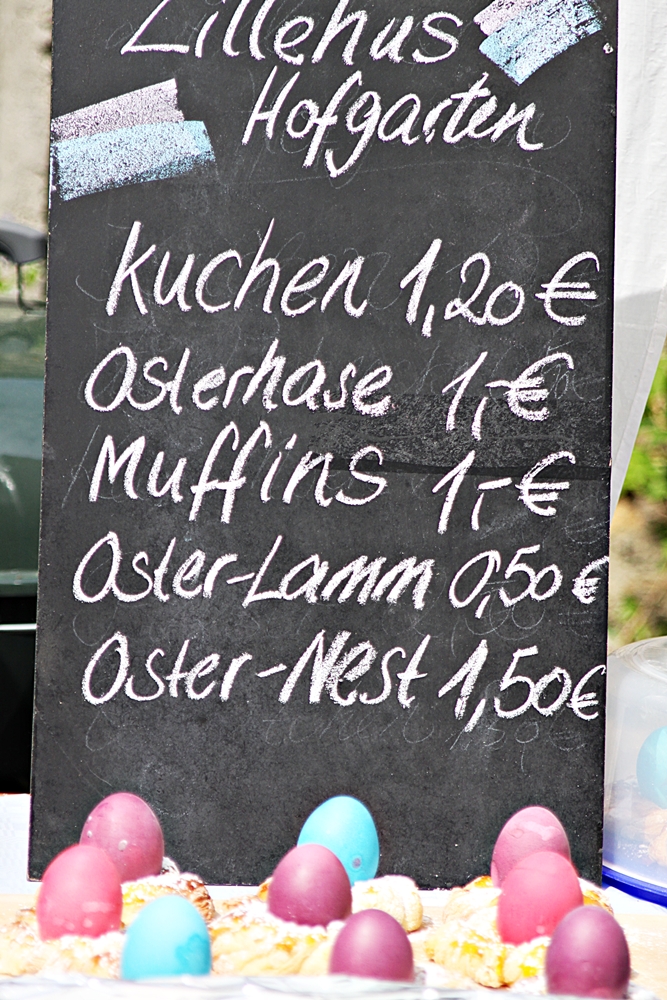 Lillehus
Hofgarten
Kuchen 1,20 €
Osterhase 1,-€
Muffins 1,-€
Oster-Lamm 0,50 €
Oster-Nest 1,50€